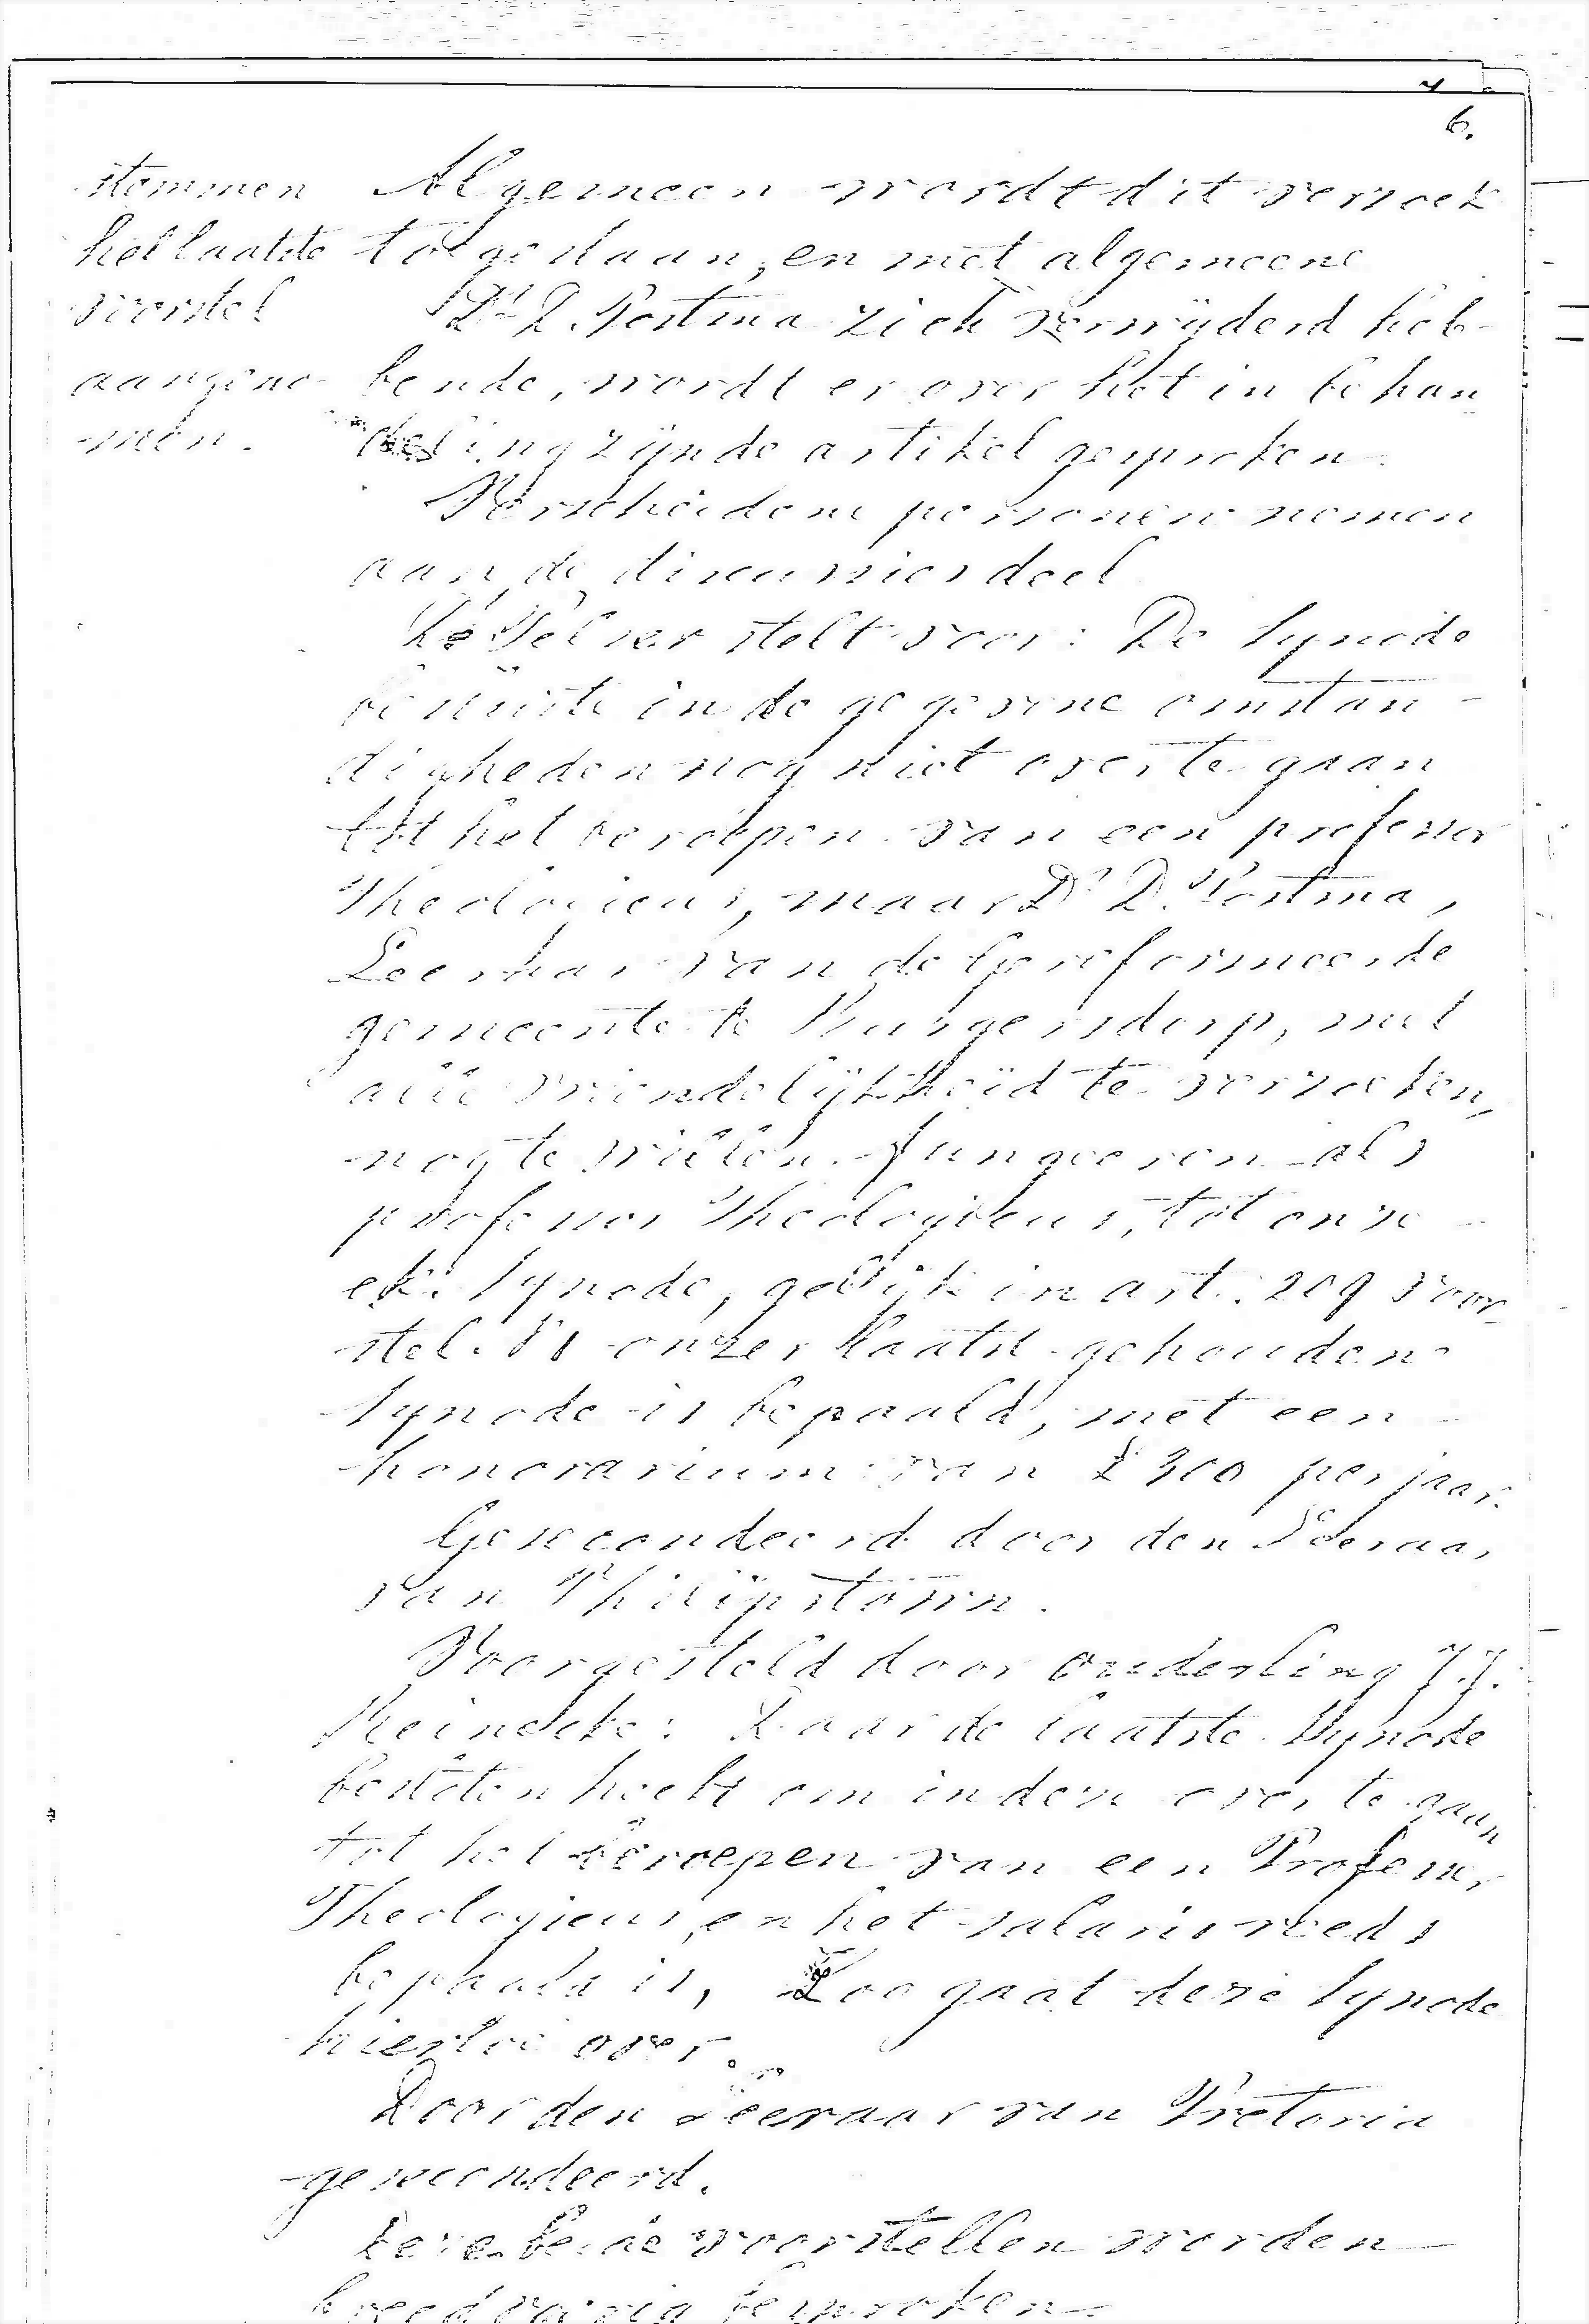 6.
stemmen
het laatste
voorstel
aangeno-
men.
Algemeen wordt dit verzoek
toegestaan, en met algemeene
Ds D. Postma zich verwijderd heb-
bende, wordt er over het in behan
deling zijnde artikel gesproken.
Verscheidene personen nemen
aan de discussies deel
stelt voor: De Synode
besluite in de gegevene omstan-
digheden nog niet over te gaan
tot het beroepen van een professor
Theologicus, maar Ds D. Postma,
Leeraar van de Gereformeerde
gemeente te Burgersdorp, met
alle vriendelijkheid te verzoeken,
nog te willen fungeeren als
professor Theologicus, tot onze
ek. Synode, gelijk in art. 209 voor-
stel. onzer laatst gehoudene
Synode is bepaald, met een
honorarium van £300 per jaar.
Gesecondeerd door den Leeraar
van Philipstown.
Voorgesteld door ouderling J.J.
Reinecke: Daar de laatste Synode
besloten heeft om in dezen over te gaan
tot het beroepen van een Professor
Theologicus, en het salaris reeds
bepaald is, Zoo gaat deze Synode
hiertoe over.
Door den Leeraar van Pretoria
gesecondeerd.
Deze beide voorstellen worden
breedvoerig besproken.